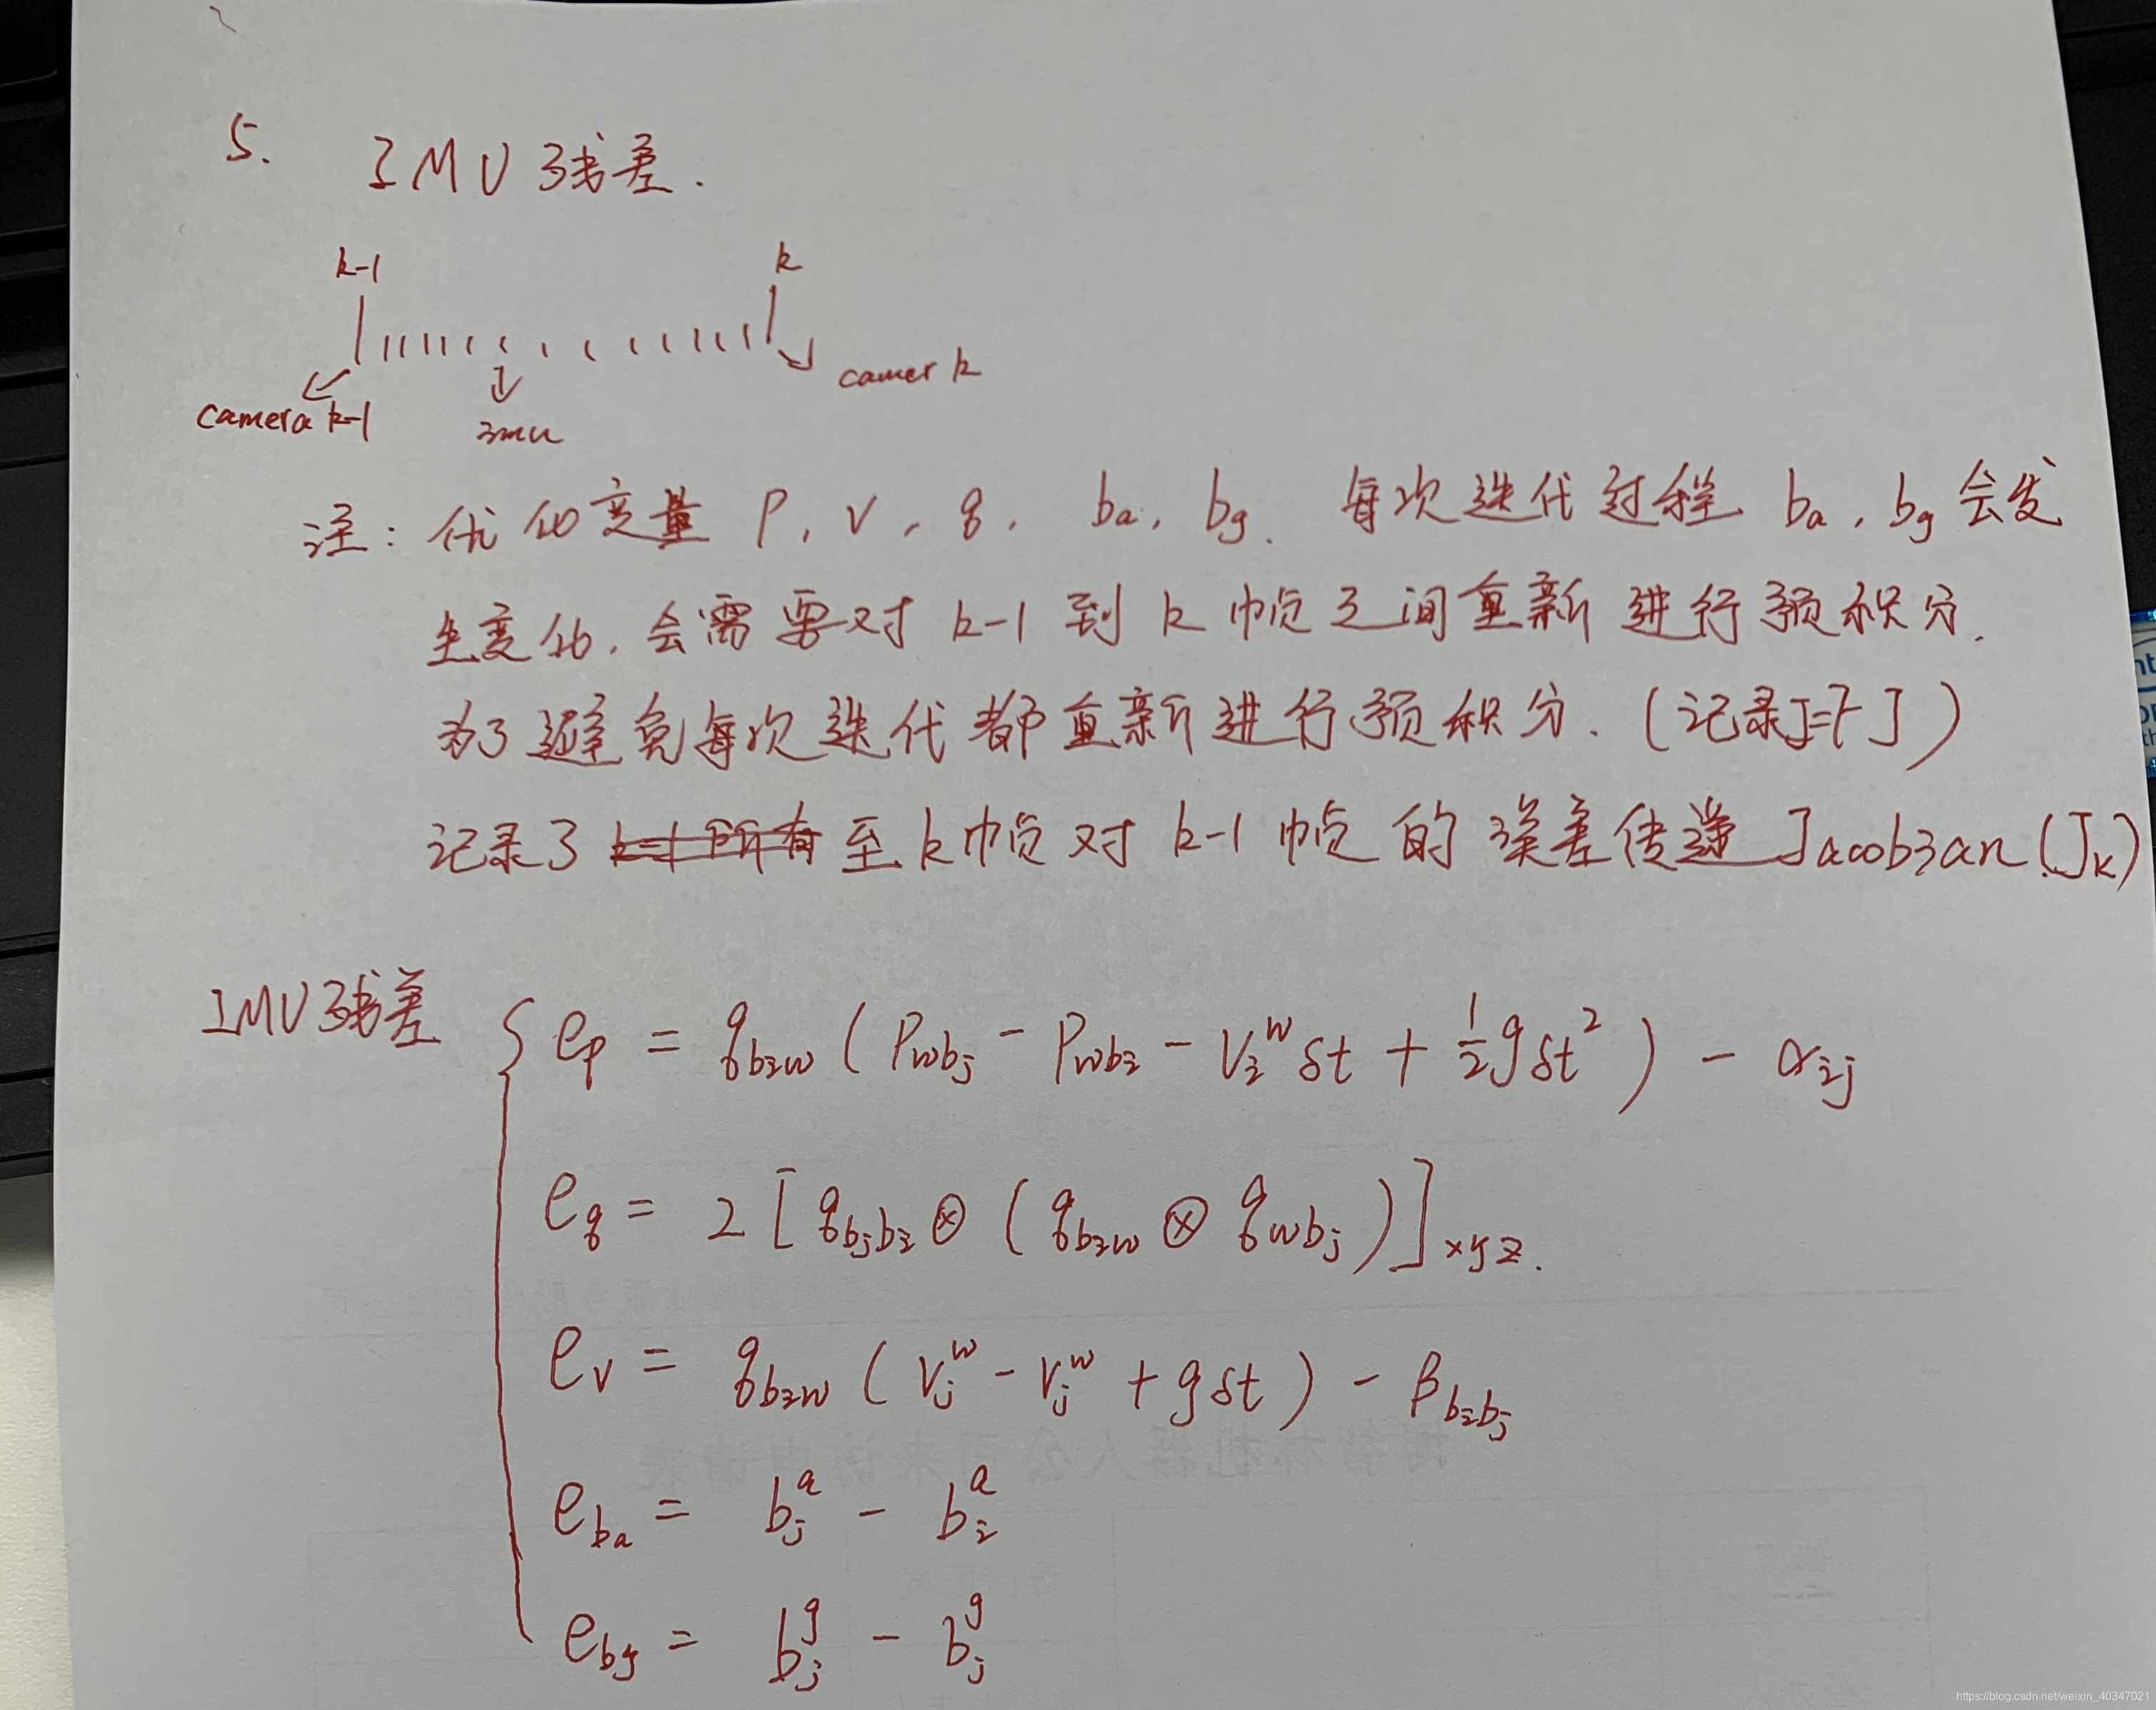 5. IMU残差.
k-1 k
camera k-1 imu camer k
注: 优化变量 P, v, q, ba, bg. 每次迭代过程 ba, bg 会发
生变化, 会需要对 k-1 到 k 帧之间重新进行预积分.
为了避免每次迭代都重新进行预积分. (记录J=FJ)
记录了 至 k帧对 k-1 帧的误差传递 Jacobian (J_k)
IMU残差 { e_p = q_{b_i w} ( P_{wb_j} - P_{wb_i} - V_i^w δt + 1/2 g δt^2 ) - α_{ij}
e_q = 2 [ q_{b_j b_i} ⊗ ( q_{b_i w} ⊗ q_{wb_j} ) ]_{xyz}.
e_v = q_{b_i w} ( v_j^w - v_j^w + g δt ) - β_{b_i b_j}
e_{ba} = b_j^a - b_i^a
e_{bg} = b_j^g - b_j^g
博智林机器人公司来访申请表
https://blog.csdn.net/weixin_40347021